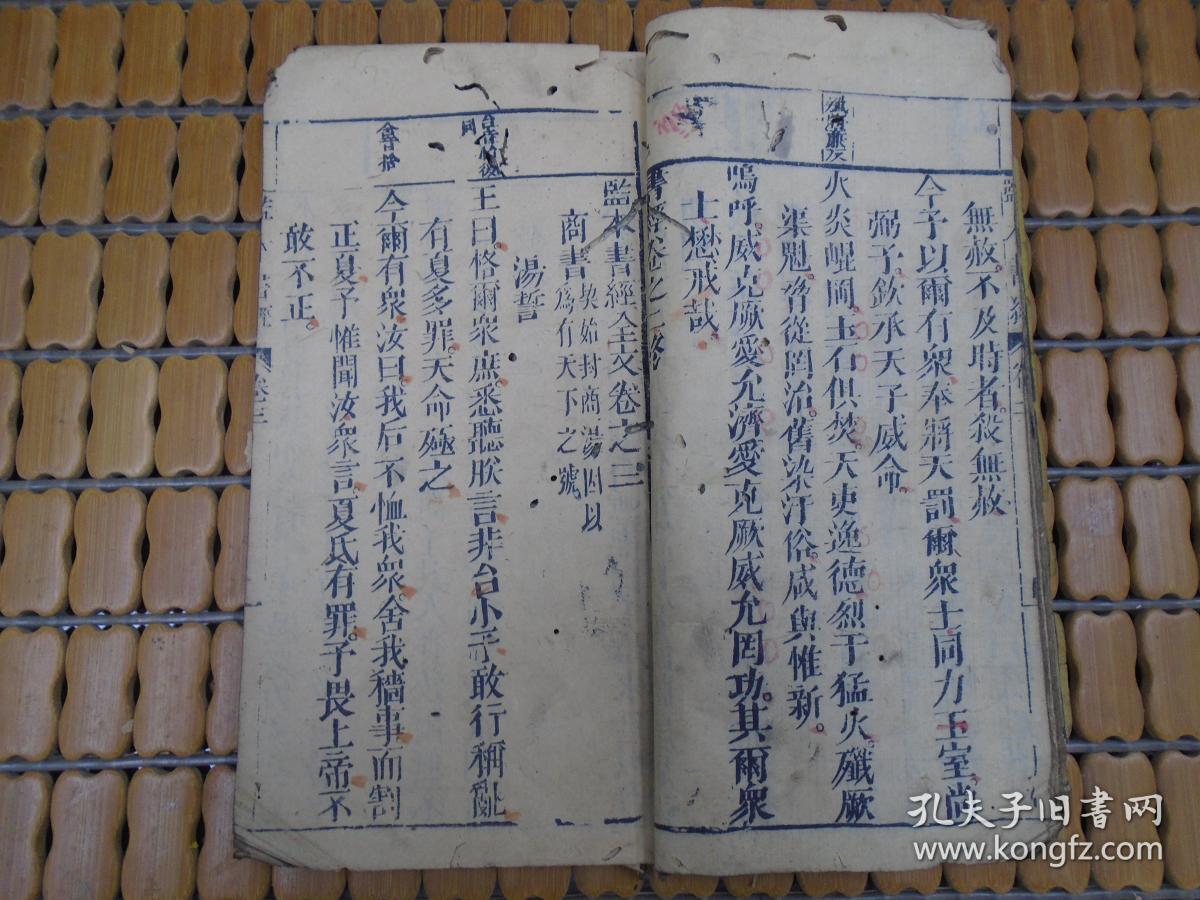 無赦不及時者殺無赦
今予以爾有衆奉將天罰爾衆士同力王室尚
弼予欽承天子威命
火炎崐岡玉石俱焚天吏逸德烈于猛火殱厥
渠魁脅從罔治舊染汙俗咸與惟新
嗚呼威克厥愛允濟愛克厥威允罔功其爾衆
士懋戒哉
書經卷之二終
監本書經全文卷之三
商書
契始封商湯因以
爲有天下之號
湯誓
王曰格爾衆庶悉聽朕言非台小子敢行稱亂
有夏多罪天命殛之
今爾有衆汝曰我后不恤我衆舍我穡事而割
正夏予惟聞汝衆言夏氏有罪予畏上帝不
敢不正
舍音捨
卷三
孔夫子旧书网
www.kongfz.com